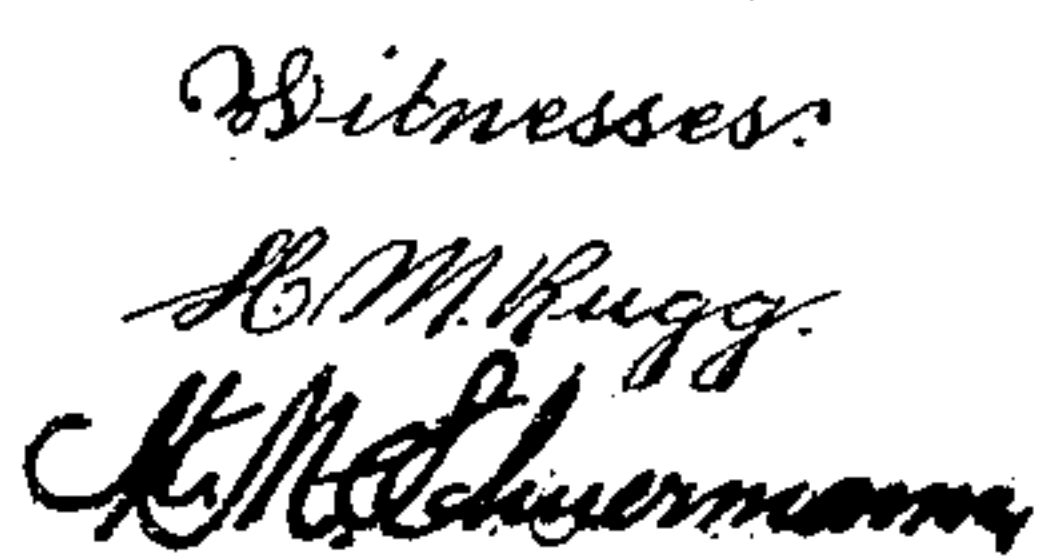 Witnesses:
H. M. Rugg.
H. M. Schuermann,